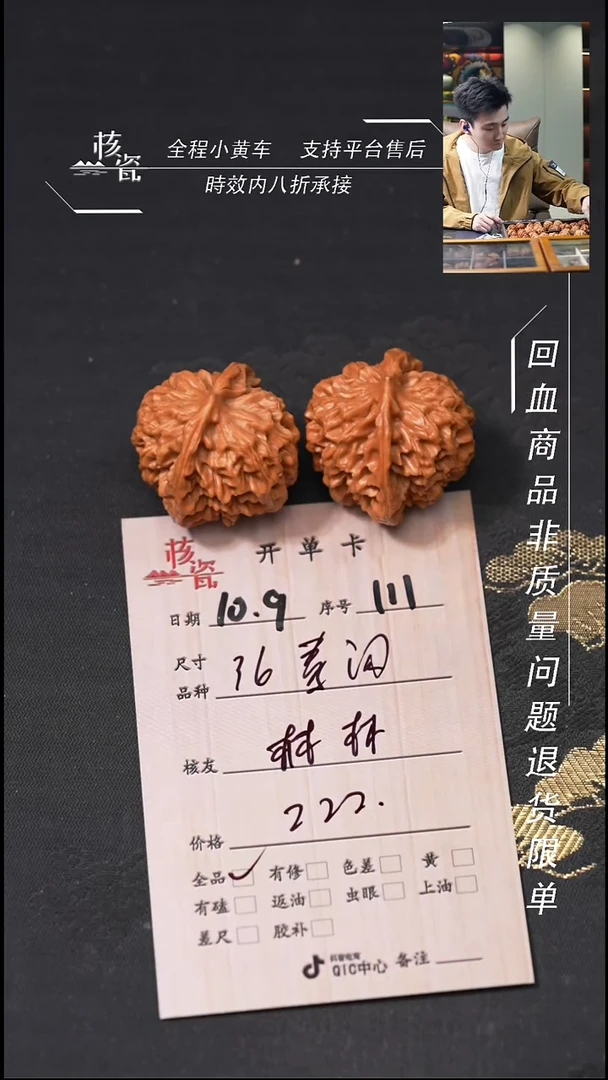 核瓷
全程小黄车 支持平台售后
時效内八折承接
回血商品非质量问题退货限单
核瓷 开单卡
日期 10.9 序号 111
尺寸
品种 36
核友 林林
价格 222.
全品 有修 色差 黄
有磕 返油 虫眼 上油
差尺 胶补
抖音电商
QIC中心 备注